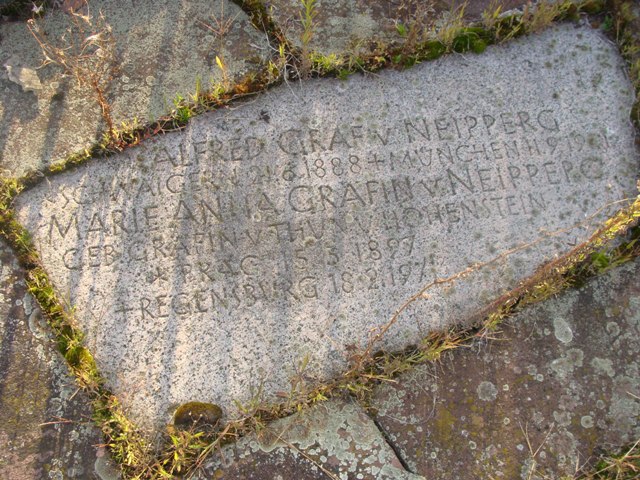 ALFRED GRAF V. NEIPPERG
SCHWAIGERN 21.6.1888 + MÜNCHEN
MARIE ANNA GRÄFIN V. NEIPPERG
GEB. GRÄFIN V. THUN V. HOHENSTEIN
* PRAG 15.3.1897
+ REGENSBURG 18.2.1971